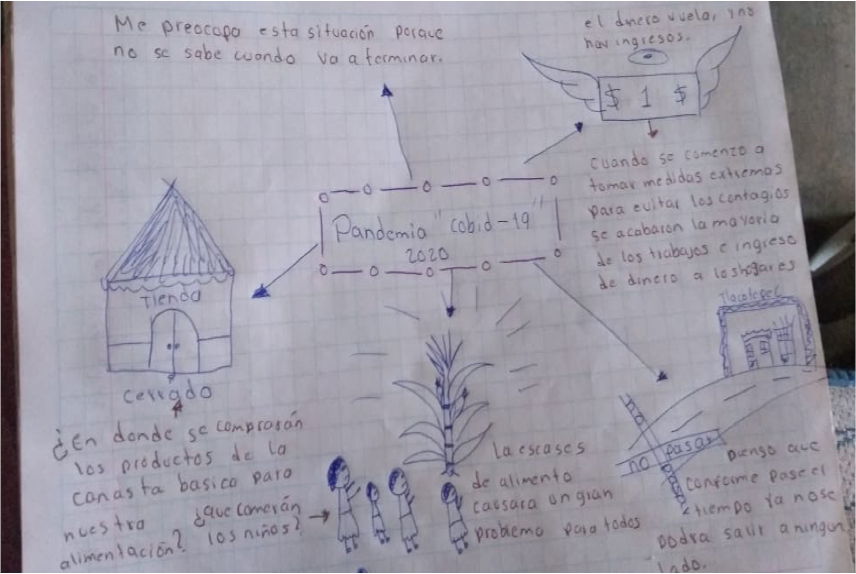 Me preocopa esta situación porque
no se sabe cuando va a terminar.
el dinero vuela, y no
hay ingresos.
$ 1 $
cuando se comenzo a
tomar medidas extremas
para evitar los contagios
se acabaron la mayoria
de los trabajos e ingreso
de dinero a los hogares
Pandemia "cobid-19"
2020
Tienda
cerrado
¿En donde se comprarán
los productos de la
canasta basica para
nuestra
alimentación?
¿que comerán
los niños?
La escases
de alimento
causara un gran
problema para todos
Tlacotepec
no pasar
no pasar
pienso que
conforme pase el
tiempo ya no se
podra salir a ningun
lado.